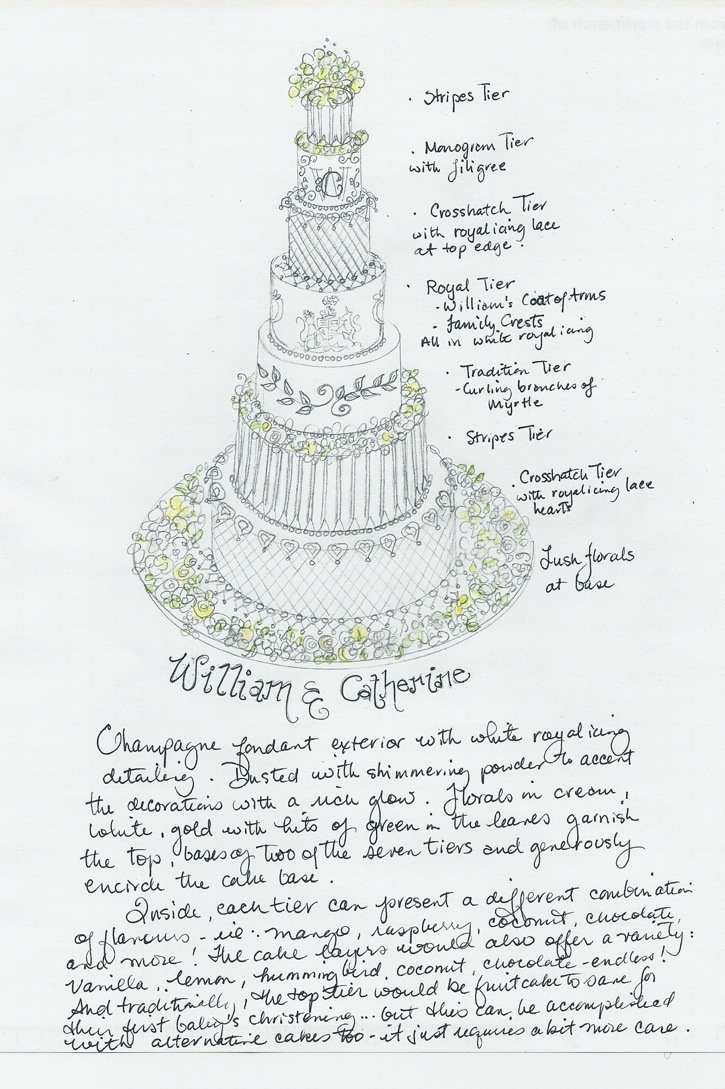 · Stripes Tier
· Monogram Tier
with filigree
C
· Crosshatch Tier
with royal icing lace
at top edge.
· Royal Tier
- William's Coat of Arms
- Family Crests
All in white royal icing
· Tradition Tier
- Curling branches of
Myrtle
· Stripes Tier
· Crosshatch Tier
with royal icing lace
hearts
Lush florals
at base
William & Catherine
Champagne fondant exterior with white royal icing
detailing. Dusted with shimmering powder to accent
the decorations with a rich glow. Florals in cream,
white, gold with hits of green in the leaves garnish
the top, bases of two of the seven tiers and generously
encircle the cake base.
Inside, each tier can present a different combination
of flavours - ie: mango, raspberry, coconut, chocolate,
and more! The cake layers would also offer a variety:
Vanilla, lemon, hummingbird, coconut, chocolate - endless!
And traditionally, the top tier would be fruitcake to save for
their first baby's christening... but this can be accomplished
with alternative cakes too - it just requires a bit more care.